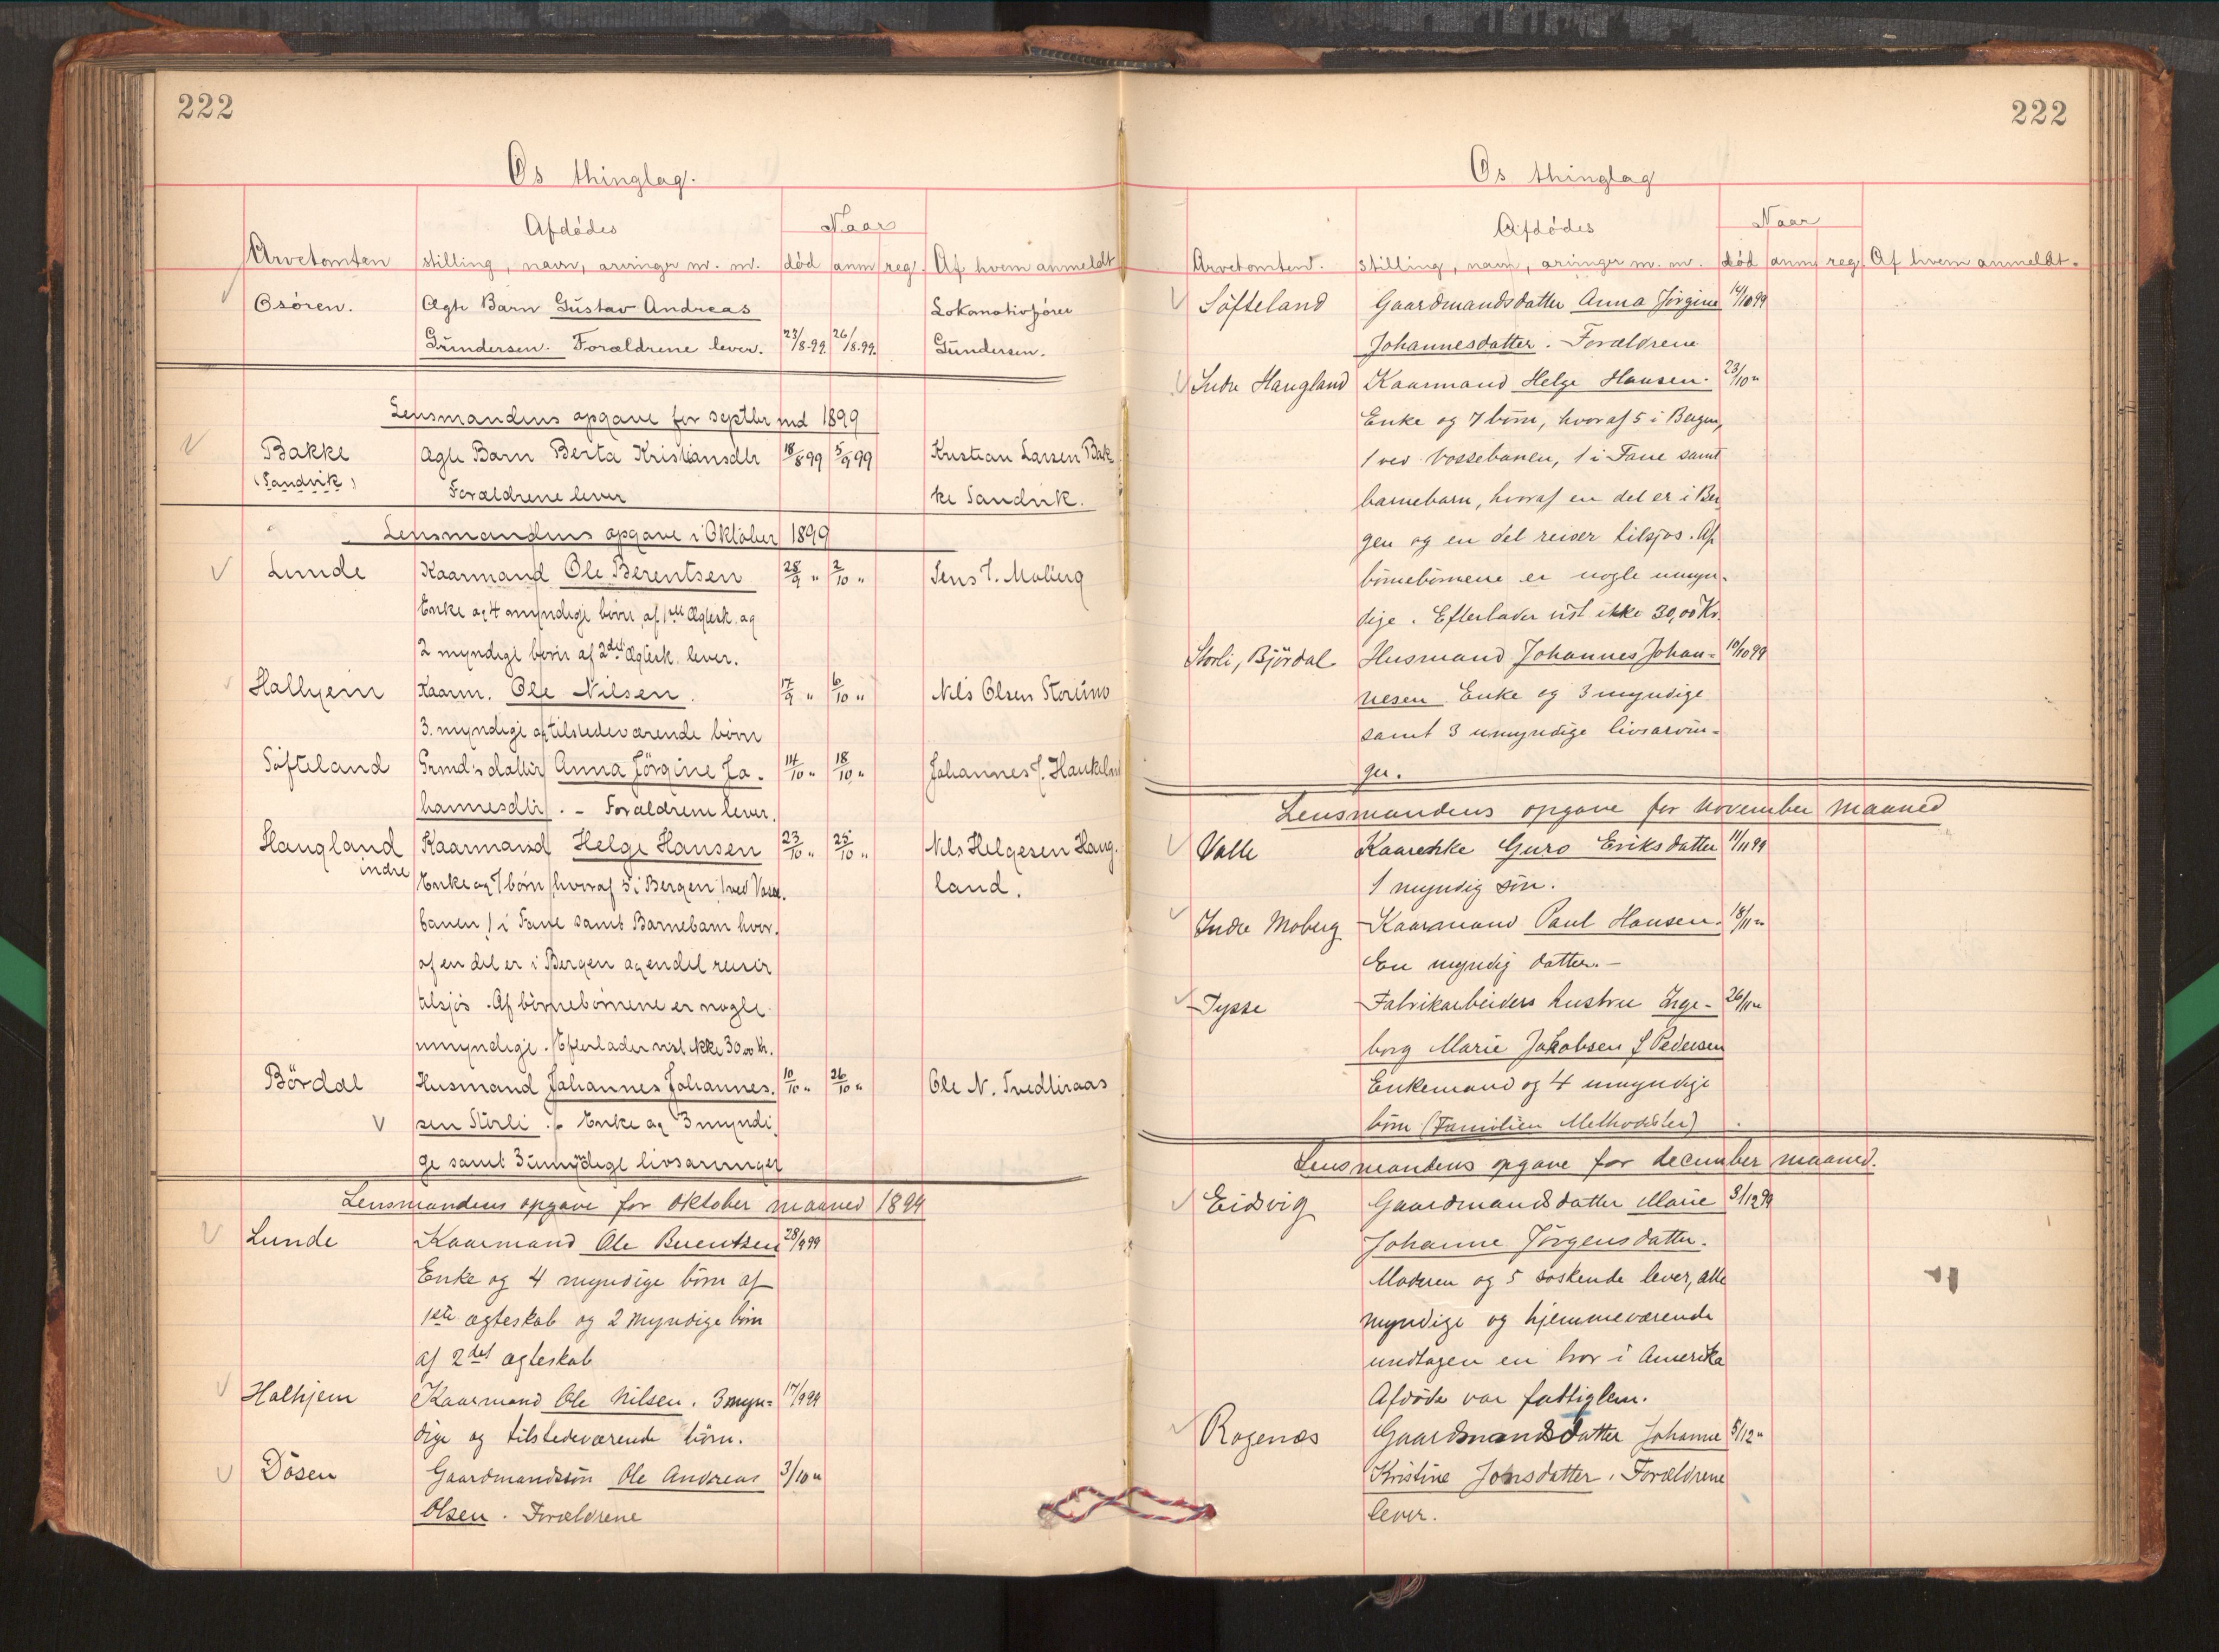 222
Os thinglag.
Afdödes Naar
Arvetomten stilling, navn, arvinger m. m. död anm reg. Af hvem anmeldt
Osören. Ægte Barn Gustav Andreas Lokomotivförer
Gundersen. Forældrene lever. 23/8-99. 26/8.99. Gundersen.
Lensmandens opgave for septbr md 1899
Bakke Ægte Barn Berta Kristiansdtr 18/8 99 5/9 99 Kristian Larsen Bak
(Sandvik) Forældrene lever ke Sandvik.
Lensmandens opgave i Oktober 1899
Lunde Kaarmand Ole Berentsen 28/9 " 2/10 " Jens J. Moberg
Enke og 4 myndige börn af 1ste Ægtesk. og
2 myndige börn af 2det Ægtesk. lever.
Halhjem Kaarm. Ole Nilsen. 17/9 " 6/10 " Nils Olsen Storumo
3 myndige og tilstedeværende börn
Söfteland Grmd's datter Anna Jörgine Jo- 14/10 " 18/10 " Johannes J. Haukeland
hannesdtr. - Forældrene lever.
Haugland Kaarmand Helge Hansen 23/10 " 25/10 " Nils Helgesen Haug-
indre Enke og 7 börn hvoraf 5 i Bergen 1 ved Vosse- land.
banen 1 i Fane samt Barnebarn hvor-
af en del er i Bergen og en del reiser
tilsjös. Af börnebörnene er nogle
umyndige. Efterlader vist ikke 30,00 Kr.
Bördal Husmand Johannes Johannes- 10/10 " 26/10 " Ole N. Tvedtraas
sen Storli. - Enke og 3 myndi-
ge samt 3 umyndige livsarvinger
Lensmandens opgave for oktober maaned 1899
Lunde Kaarmand Ole Berentsen 28/9 99
Enke og 4 myndige börn af
1ste ægteskab og 2 myndige börn
af 2det ægteskab
Halhjem Kaarmand Ole Nilsen. 3 myn= 17/9 99
dige og tilstedeværende börn.
Dösen Gaardmandssön Ole Andreas 3/10 "
Olsen. Forældrene
222
Os thinglag
Afdödes Naar
Arvetomten. stilling, navn, arvinger m. m. död anm reg. Af hvem anmeldt.
Söfteland Gaardmandsdatter Anna Jörgine 14/10 99
Johannesdatter. Forældrene
Indre Haugland Kaarmand Helge Hansen. 23/10 "
Enke og 7 börn, hvoraf 5 i Bergen,
1 ved Vossebanen, 1 i Fane samt
barnebarn, hvoraf en del er i Ber
gen og en del reiser tilsjøs. Af
börnebörnene er nogle umyn-
dige. Efterlader vist ikke 30,00 Kr.
Storli, Björdal Husmand Johannes Johan= 10/10 99
nesen. Enke og 3 myndige
samt 3 umyndige livsarvin=
ger.
Lensmandens opgave for november maaned
Valle Kaarenke Guro Eriksdatter 11/11 99
1 myndig sön.
Indre Moberg Kaarmand Paul Hansen. 18/11 "
En myndig datter. -
Tysse Fabrikarbeiders hustru Inge- 26/11 "
borg Marie Jakobsen f. Pedersen
Enkemand og 4 umyndige
börn (Familien Methodister)
Lensmandens opgave for december maaned.
Eidsvig Gaardmandsdatter Marie 3/12 99
Johanne Jörgensdatter.
Moderen og 5 söskende lever, alle
myndige og hjemmeværende
undtagen en bror i Amerika
Afdöde var fattiglem.
Rogenæs Gaardmandsdatter Johanne 5/12 "
Kristine Jonsdatter. Forældrene
lever.